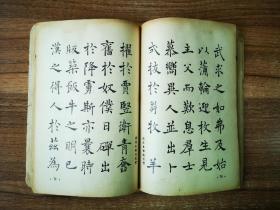 武求之如弗及始
以蒲輪迎枚生見
主父而歎息群士
慕嚮異人並出卜
式拔於芻牧羊
擢於賈豎衛青
奮於奴僕日磾出
於降虜斯亦曩時
版築飯牛之明已
漢之得人於茲為